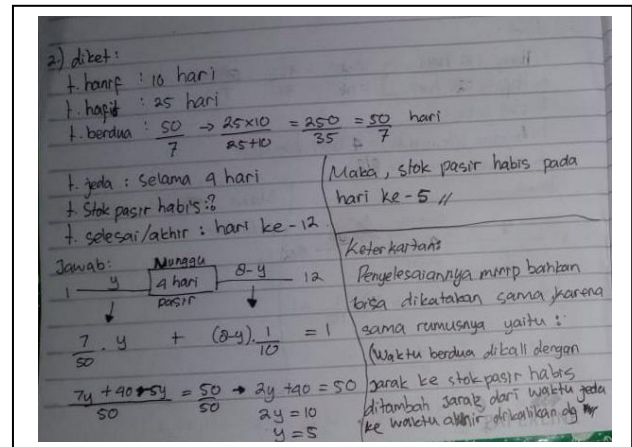 2.) diket:
t. hanif : 10 hari
t. hafit : 25 hari
t. berdua : 50/7 → 25x10/25+10 = 250/35 = 50/7 hari
t. jeda : selama 4 hari
t. Stok pasir habis : ?
t. selesai/akhir : hari ke-12.
Jawab:
Nunggu
1 y 4 hari 8-y 12
pasir
7/50 . y + (8-y) . 1/10 = 1
7y + 40 - 5y/50 = 50/50 → 2y + 40 = 50
2y = 10
y = 5
Maka, stok pasir habis pada
hari ke-5 //
Keterkaitan:
Penyelesaiannya mirip bahkan
bisa dikatakan sama, karena
sama rumusnya yaitu :
(Waktu berdua dikali dengan
jarak ke stok pasir habis
ditambah jarak dari waktu jeda
ke waktu akhir dikalikan dg